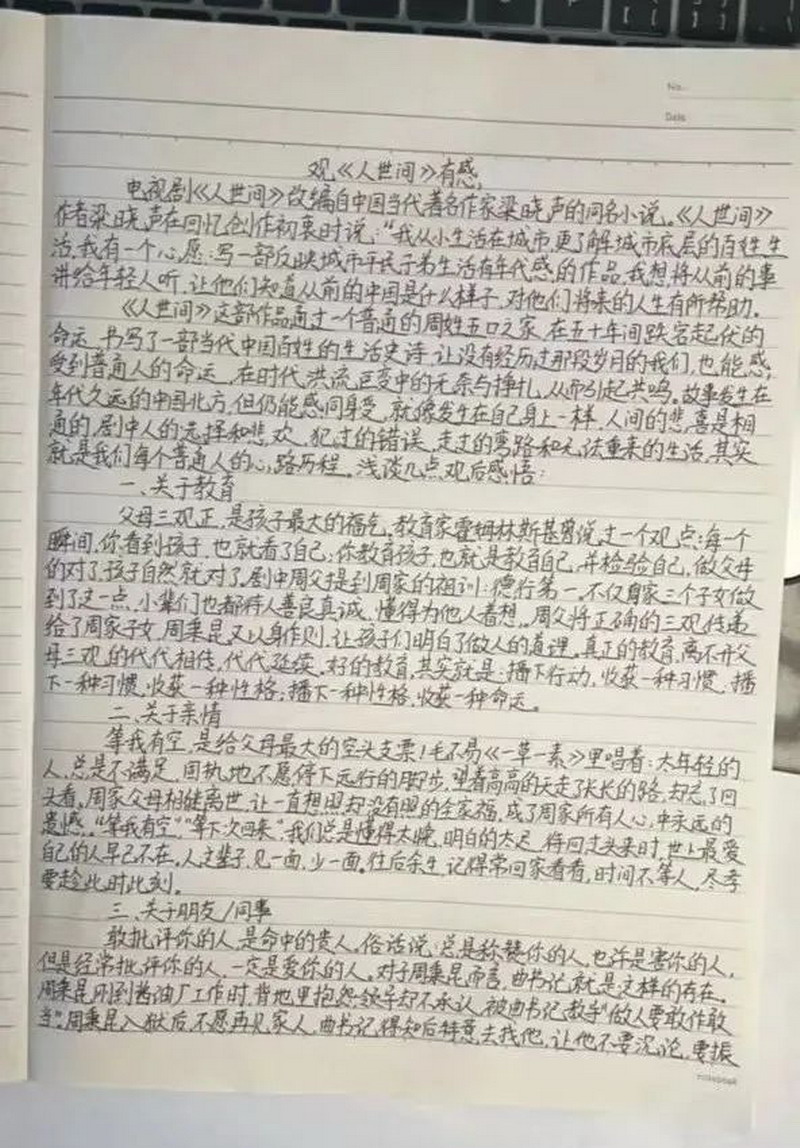 No.
Date
观《人世间》有感
电视剧《人世间》改编自中国当代著名作家梁晓声的同名小说。《人世间》
作者梁晓声在回忆创作初衷时说：“我从小生活在城市，更了解城市底层的百姓生
活，我有一个心愿：写一部反映城市平民子弟生活有年代感的作品，我想将从前的事
讲给年轻人听，让他们知道从前的中国是什么样子，对他们将来的人生有所帮助。
《人世间》这部作品通过一个普通的周姓五口之家，在五十年间跌宕起伏的
命运，书写了一部当代中国百姓的生活史诗，让没有经历过那段岁月的我们，也能感
受到普通人的命运，在时代洪流巨变中的无奈与挣扎，从而引起共鸣。故事发生在
年代久远的中国北方，但仍能感同身受，就像发生在自己身上一样，人间的悲喜是相
通的，剧中人的选择和悲欢，犯过的错误，走过的弯路和无法重来的生活，其实
就是我们每个普通人的心路历程。浅谈几点观后感悟：
一、关于教育
父母三观正，是孩子最大的福气。教育家霍姆林斯基曾说过一个观点：每一个
瞬间，你看到孩子，也就看了自己；你教育孩子，也就是教育自己，并检验自己，做父母
的对了，孩子自然就对了。剧中周父提到周家的祖训：德行第一。不仅自家三个子女做
到了这一点，小辈们也都待人善良真诚，懂得为他人着想。周父将正确的三观传递
给了周家子女，周秉昆又以身作则，让孩子们明白了做人的道理。真正的教育，离不开父
母三观的代代相传，代代延续。好的教育，其实就是：播下行动，收获一种习惯，播
下一种习惯，收获一种性格；播下一种性格，收获一种命运。
二、关于亲情
等我有空，是给父母最大的空头支票！毛不易《一荤一素》里唱着：太年轻的
人，总是不满足，固执地不愿停下远行的脚步，望着高高的天走了长长的路，却忘了回
头看。周家父母相继离世，让一直想照却没有照的全家福，成了周家所有人心中永远的
遗憾。“等我有空”“等下次回来”，我们总是懂得太晚，明白的太迟，待回过头来时，世上最爱
自己的人早已不在。人这辈子，见一面，少一面。往后余生，记得常回家看看，时间不等人，尽孝
要趁此时此刻。
三、关于朋友/同事
敢批评你的人，是命中的贵人。俗话说：总是称赞你的人，也许是害你的人，
但是经常批评你的人，一定是爱你的人。对于周秉昆而言，曲书记就是这样的存在。
周秉昆刚到酱油厂工作时，背地里抱怨领导却不承认，被曲书记教导“做人要敢作敢
当”。周秉昆入狱后，不愿再见家人，曲书记得知后特意去找他，让他不要沉沦，要振